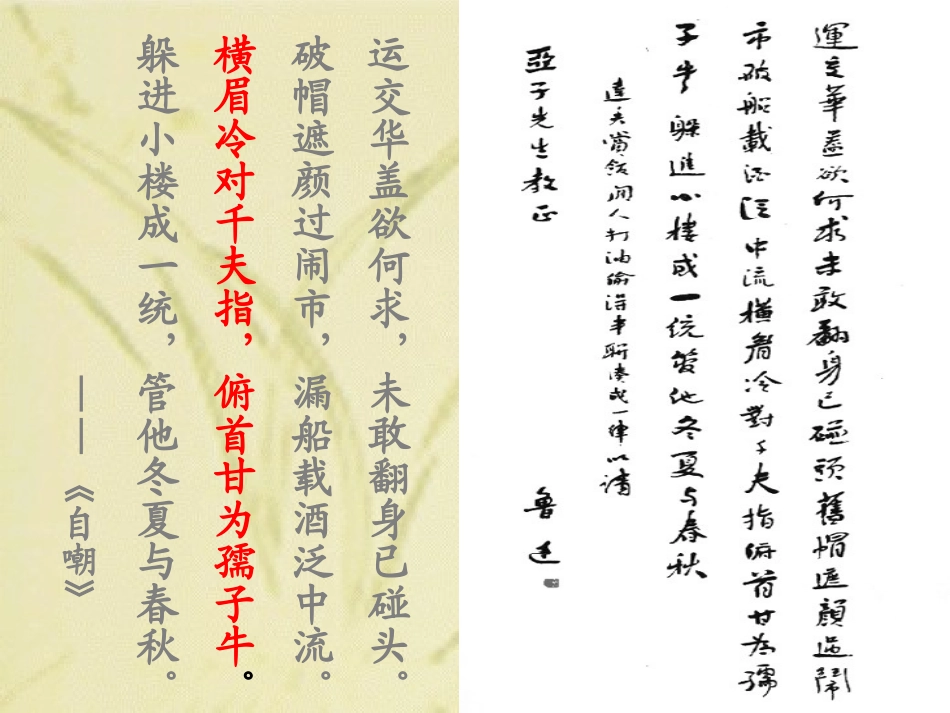 运交华盖欲何求，未敢翻身已碰头。
破帽遮颜过闹市，漏船载酒泛中流。
横眉冷对千夫指，俯首甘为孺子牛。
躲进小楼成一统，管他冬夏与春秋。
——《自嘲》
運交華蓋欲何求未敢翻身已碰頭舊帽遮顏過鬧
市破船載酒泛中流橫眉冷對千夫指俯首甘為孺
子牛 躲進小樓成一統管他冬夏与春秋
達夫賞飯閑人打油偷得半聯湊成一律以請
亞子先生教正
魯迅